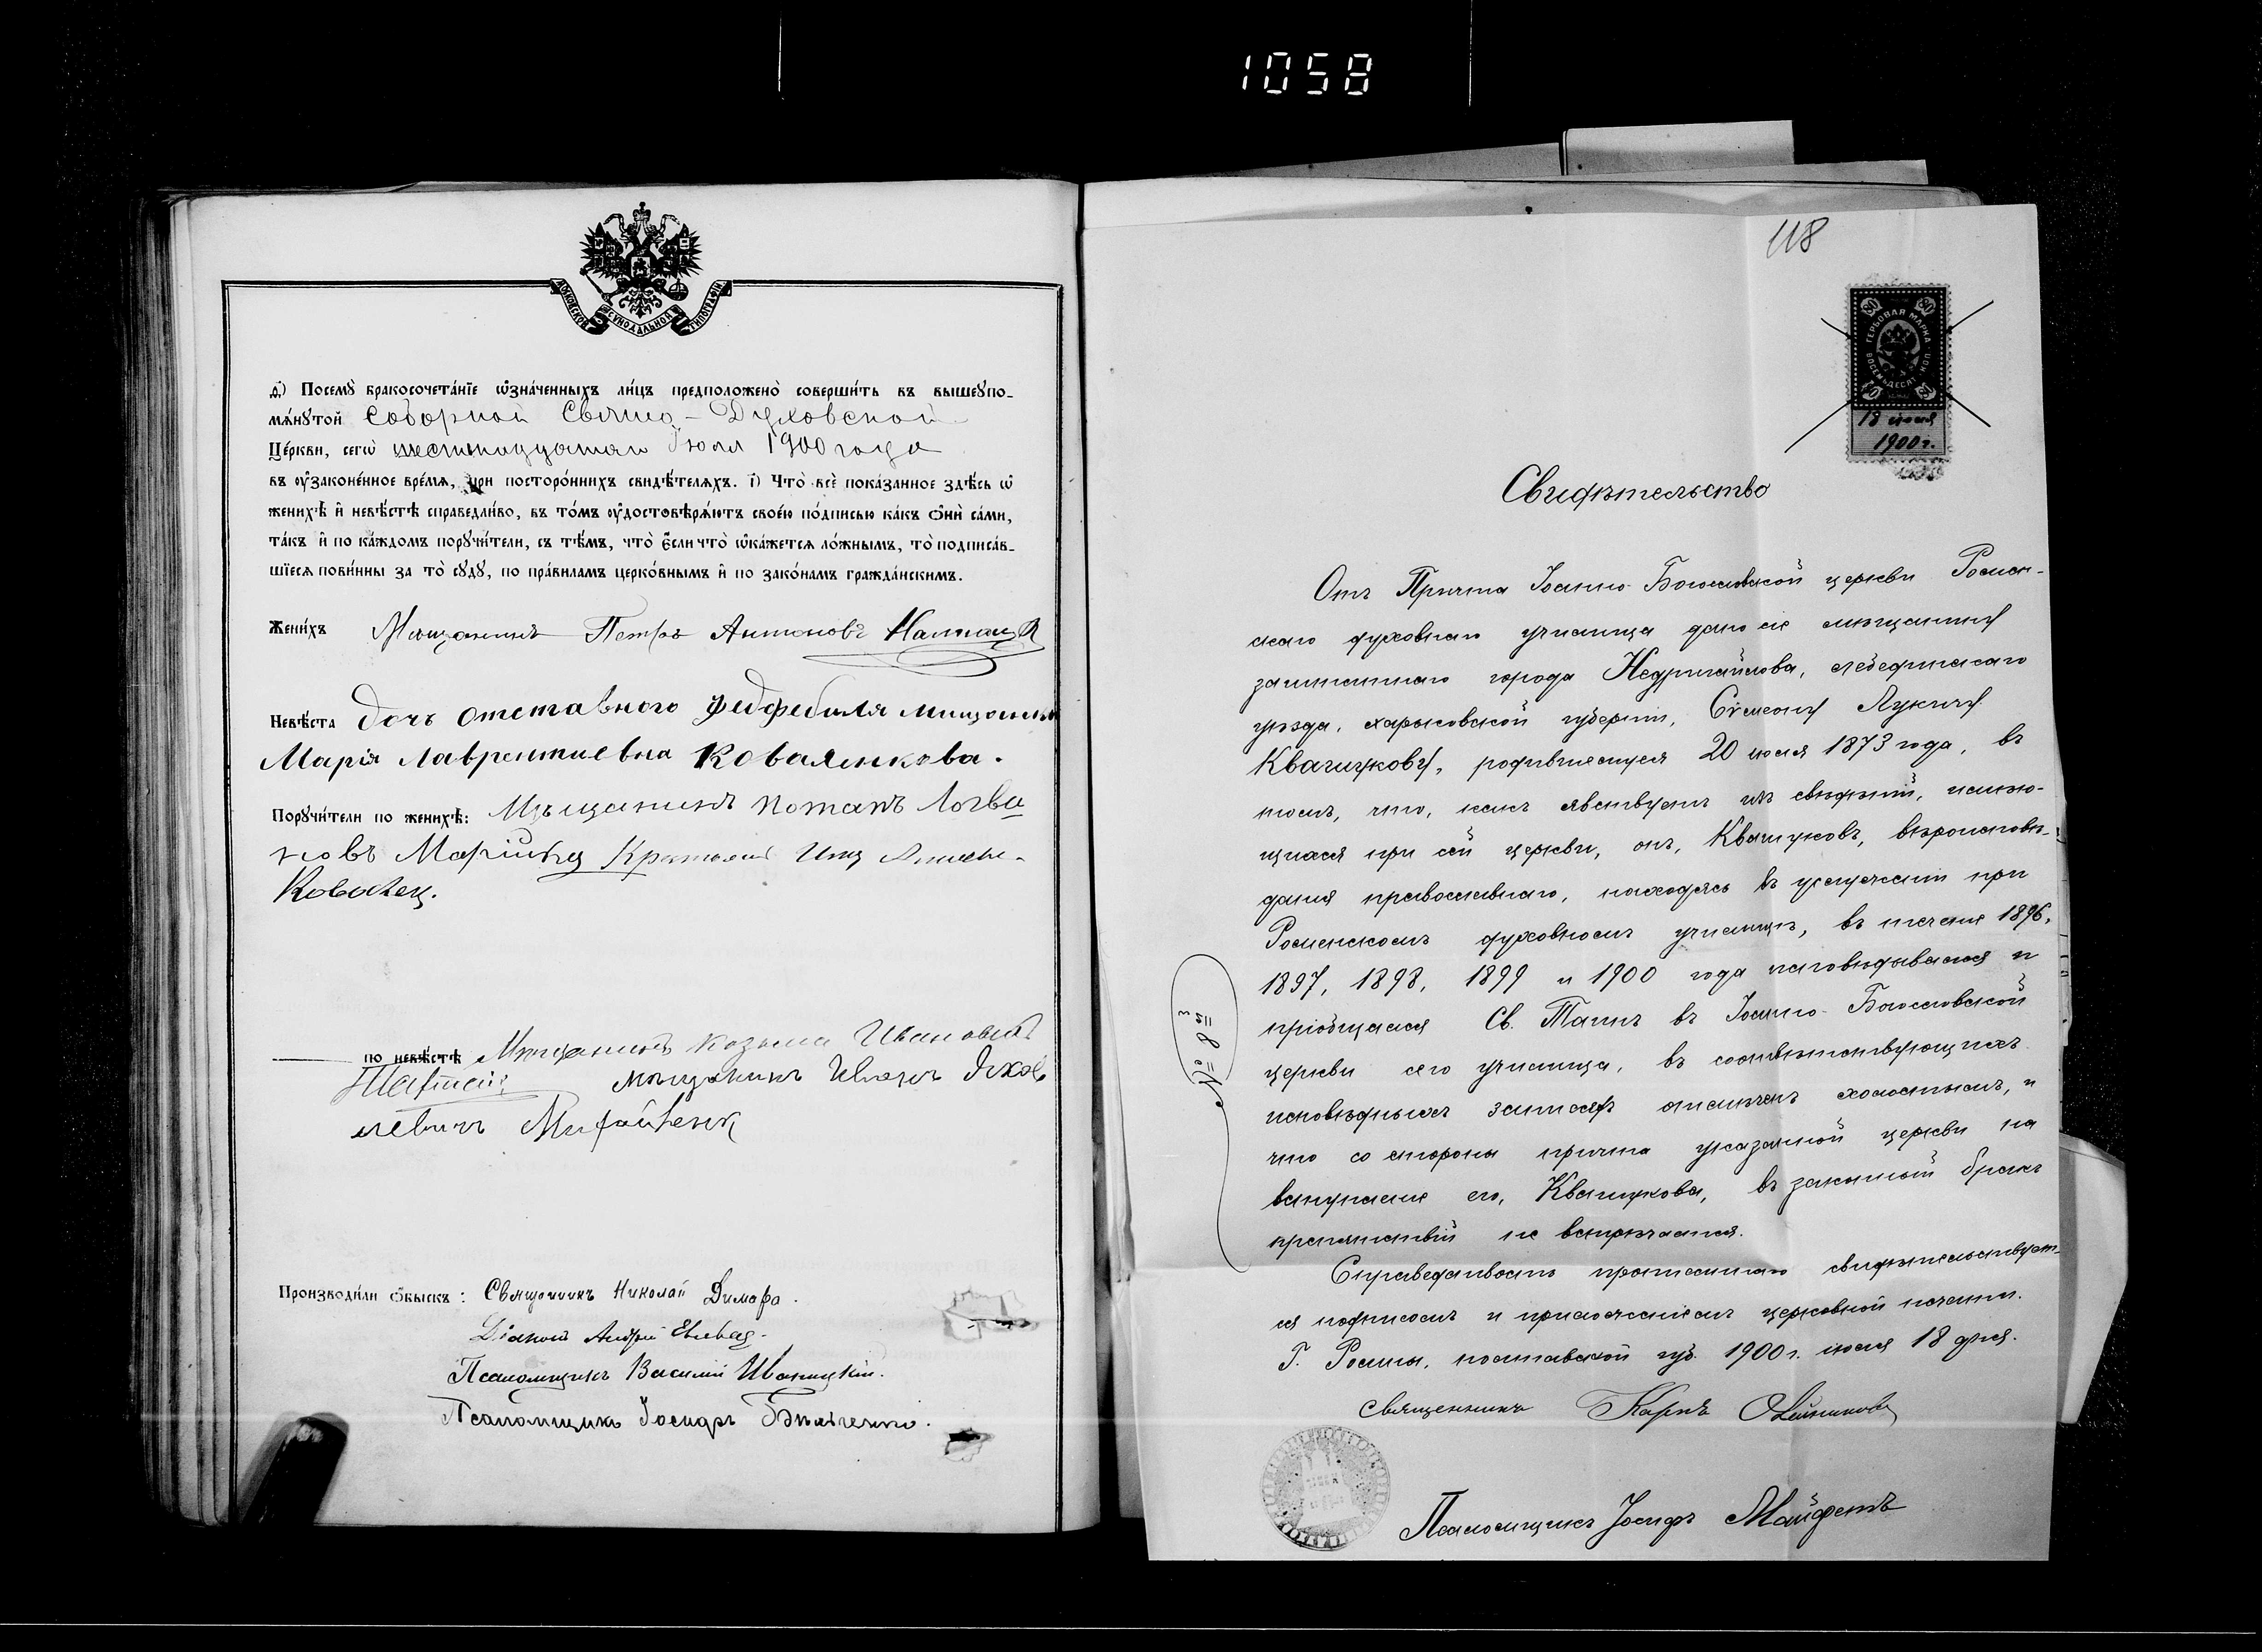 1058
МОСКОВСКОЙ СѴНОДАЛЬНОЙ ТИПОГРАФІИ
д҃) Посемꙋ̀ бракосочета́нїе ѡ҆зна́ченныхъ ли́цъ предположено̀ соверши́ть въ вышеꙋпо-
мѧ́нꙋтой Соборной Свято-Духовской
Це́ркви, сегѡ̀ шестнадцатаго Іюля 1900 года
въ ᲂу҆законе́нное вре́мѧ, при посторо́ннихъ свидѣ́телѧхъ. і҃) Что̀ всѐ пока́занное здѣ́сь ѡ҆
женихѣ̀ и҆ невѣ́стѣ справедли́во, въ то́мъ ᲂу҆достовѣрѧ́ютъ свое́ю по́дписью ка́къ ѻ҆нѝ са́ми,
та́къ и҆ по ка́ждомъ порꙋчи́тели, съ тѣ́мъ, что̀ є҆́сли что̀ ѡ҆ка́жетсѧ ло́жнымъ, то̀ подписа́в-
шїесѧ пови́нны за то̀ сꙋдꙋ̀, по пра́виламъ церко́внымъ и҆ по зако́намъ гражда́нскимъ.
Жени́хъ Мѣщанинъ Петръ Антоновъ
Невѣ́ста дочь отставного фельдфебеля мищанка
Марія Лаврентиевна Коваленкова.
Порꙋчи́тели по женихѣ̀: Мѣщанинъ Потапъ Логви
новъ
по невѣ́стѣ Мѣщанинъ Козьма Ивановъ
мѣщанинъ Иванъ Яков
левичъ
Производи́ли ѻ҆́быскъ: Священникъ Николай Димара.
Діаконъ Андрей
Псаломщикъ Василій Иваницкій.
Псаломщикъ Іосифъ Бѣліченко.
118
ГЕРБОВАЯ МАРКА
ВОСЕМЬДЕСЯТ КОП.
80
18 іюля
1900 г.
Свидѣтельство
Отъ Причта Іоанно-Богословской церкви Ромен-
скаго духовнаго училища дано сіе мѣщанину
заштатнаго города Недригайлова, лебединскаго
уѣзда, харьковской губерніи, Сѵмеону Лукичу
Квашукову, родившемуся 20 іюля 1873 года, въ
томъ, что, какъ явствуетъ изъ свѣдѣній, имѣю-
щихся при сей церкви, онъ, Квашуковъ, вѣроисповѣ-
данія православнаго, находясь въ услуженіи при
Роменскомъ духовномъ училищѣ, въ теченіе 1896,
1897, 1898, 1899 и 1900 года исповѣдывался и
пріобщался Св. Таинъ въ Іоанно-Богословской
церкви сего училища, въ соотвѣтствующихъ
исповѣдныхъ записяхъ отмѣченъ холостымъ, и
что со стороны причта указанной церкви на
вступленіе его, Квашукова, въ законный бракъ
препятствій не встрѣчается.
№ 8й
Справедливость прописаннаго свидѣтельствует-
ся подписомъ и приложеніемъ церковной печати.
Г. Ромны, полтавской губ. 1900 г. іюля 18 дня.
Священникъ Карпъ Олейниковъ
Псаломщикъ Іосифъ